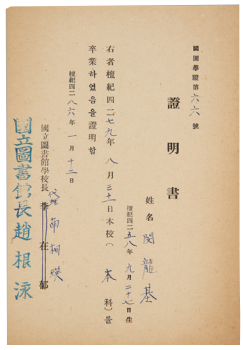 國圖學證第六六號
證明書
姓名 閔龍基
檀紀四二五八年九月二十七日生
右者檀紀四二七九年八月三十一日本校(本科)를
卒業하였음을證明함
檀紀四二八六年一月十三日
國立圖書館學校長
在郁
國立圖書館長趙根泳